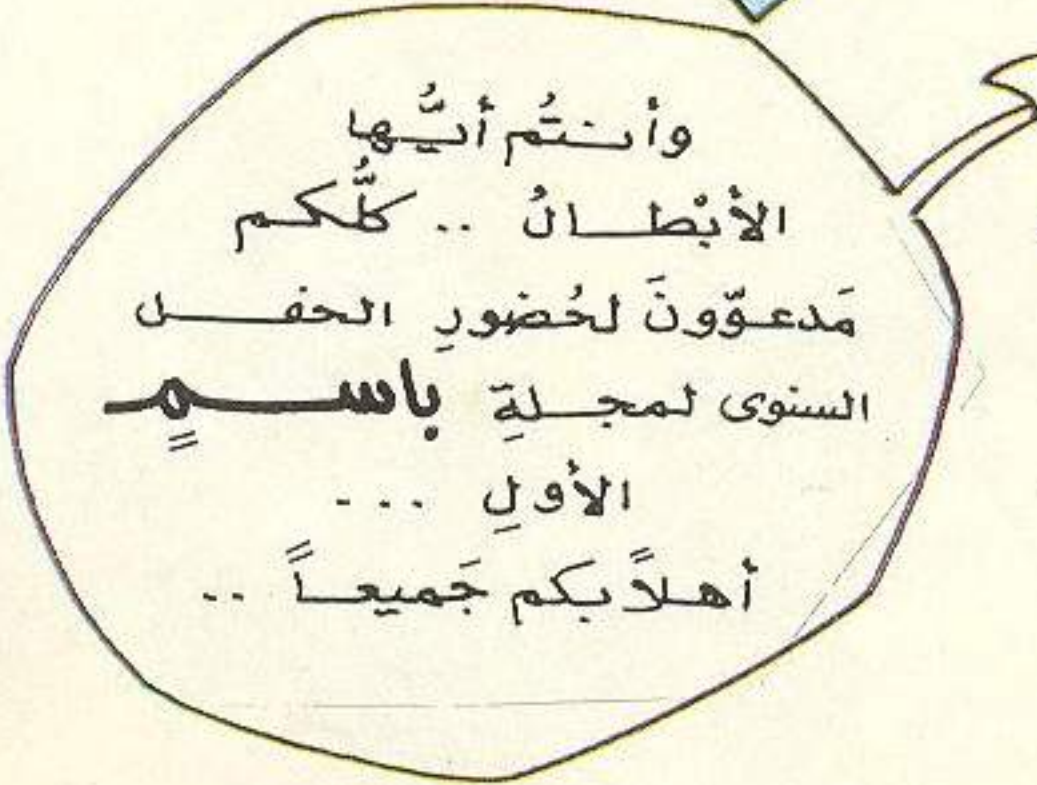 وأنتُم أيُّها
الأبْطالُ .. كلُّكم
مَدعوّونَ لحُضورِ الحفل
السنوى لمجلةِ باسمٍ
الأولِ ...
أهلاً بكم جَميعاً ..